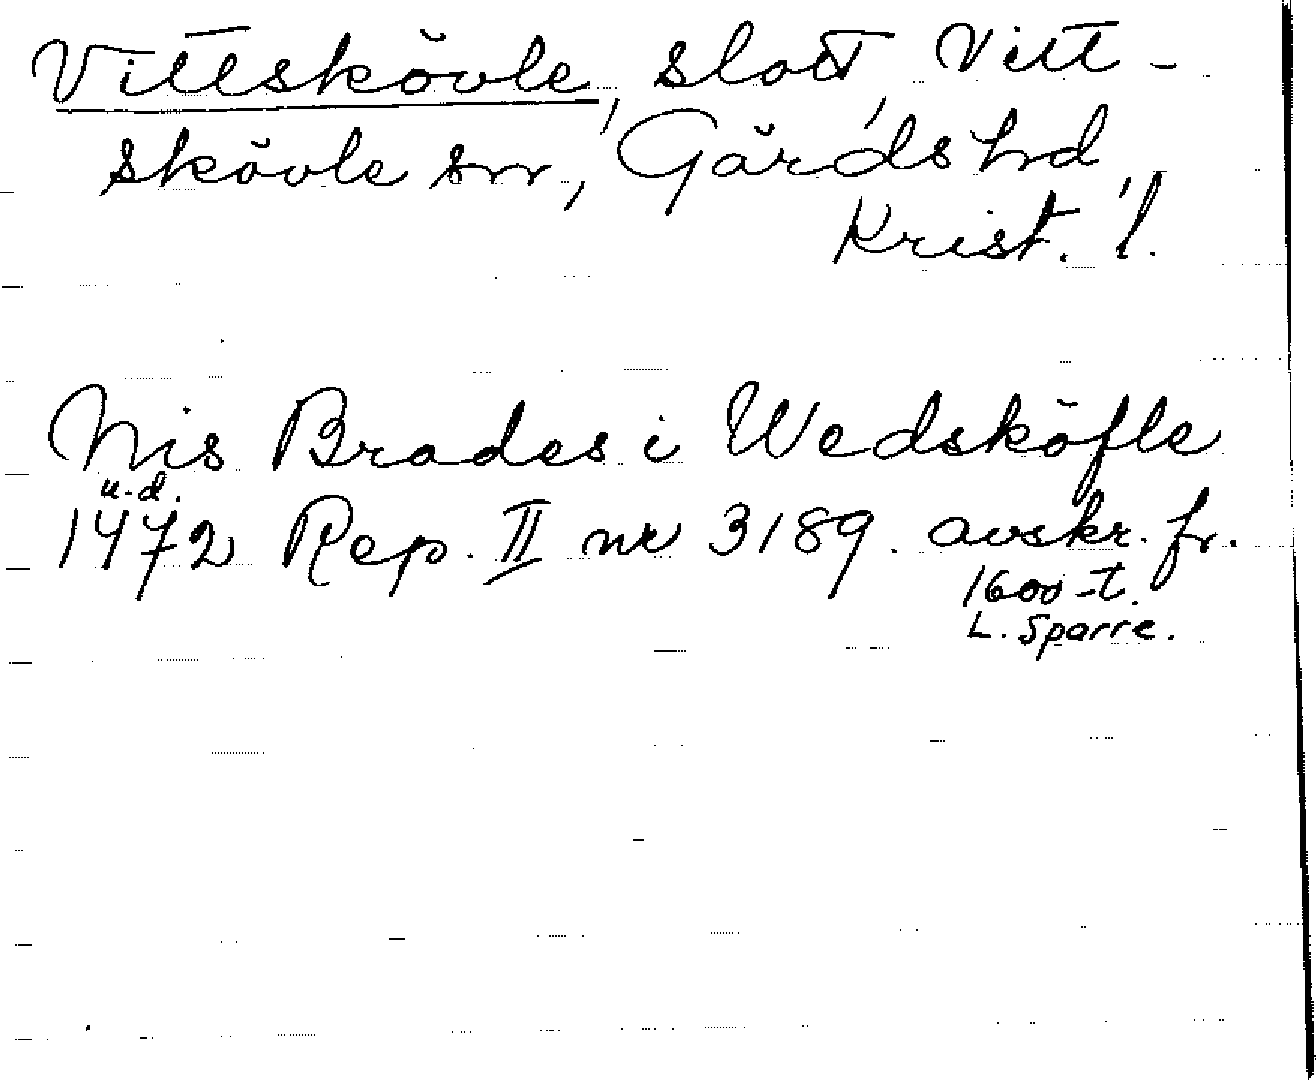 Vittskövle, slott, Vitt-
skövle sn, Gärds hd,
Krist. l.
Nis Brades i Wedsköfle
u.d.
1472 Rep. II nr 3189. avskr. fr.
1600-t.
L. Sparre.